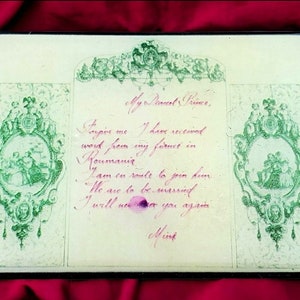 My Dearest Prince,
Forgive me. I have received
word from my fiance in
Roumania
I am en route to join him
We are to be married
I will never see you again
Mina